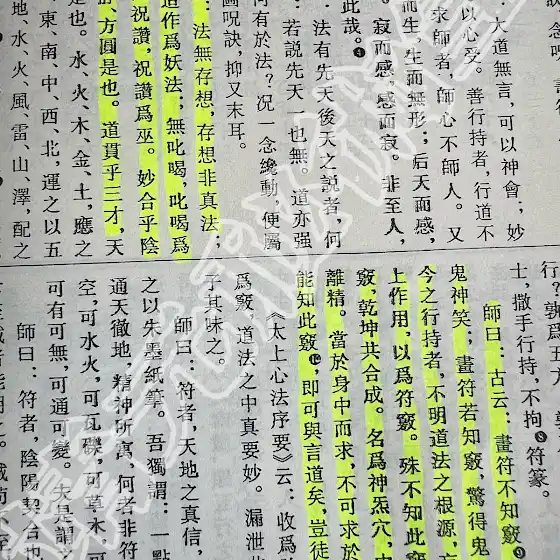 大道無言，可以神會；妙
以心受。善行持者，行道不
求師者，師心不師人。又
而生，生而無形；后天而感，
寂而感，感而寂。非至人，
此哉。❹
法有先天後天之説者，何
若説先天，也無。道亦强
何有於法？况一念纔動，便屬
呪訣，抑又末耳。
法無存想，存想非真法；
造作爲妖法；無叱喝，叱喝爲
祝讚，祝讚爲巫。妙合乎陰
方圓是也。道貫乎三才，天
是也。水、火、木、金、土，應之
東、南、中、西、北，運之以五
地、水、火、風、雷、山、澤，配之
士，撒手行持，不拘符篆。
師曰：古云：畫符不知竅，
鬼神笑；畫符若知竅，驚得鬼
今之行持者，不明道法之根源，
上作用，以爲符竅。殊不知此竅
竅，乾坤共合成。名爲神炁穴，
離精。當於身中而求，不可求於
能知此竅，即可與言道矣，豈徒
《太上心法序要》云：收爲
爲竅，道法之中真要妙。漏泄
子其味之。
師曰：符者，天地之真信，
之以朱墨紙筆。吾獨謂：一點
通天徹地，精神所寓，何者非符
空，可水火，可瓦礫，可草木，可
可有可無，可通可變。夫是謂
師曰：符者，陰陽契合也